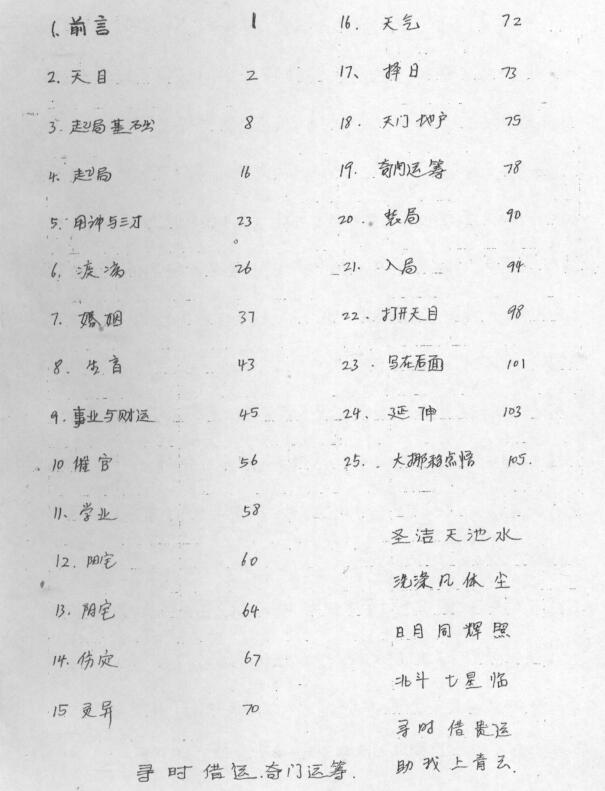 1. 前言 1
2. 天目 2
3. 起局基础 8
4. 起局 16
5. 用神与三才 23
6. 疾病 26
7. 婚姻 37
8. 生育 43
9. 事业与财运 45
10 催官 56
11. 学业 58
12. 阳宅 60
13. 阴宅 64
14. 伤灾 67
15 灵异 70
16. 天气 72
17、 择日 73
18. 天门地户 75
19. 奇门运筹 78
20. 装局 90
21. 入局 94
22. 打开天目 98
23. 写在后面 101
24. 延伸 103
25. 大挪移点悟 105.
圣洁天池水
洗涤凡体尘
日月同辉照
北斗七星临
寻时借贵运
助我上青云.
寻时借运.奇门运筹.